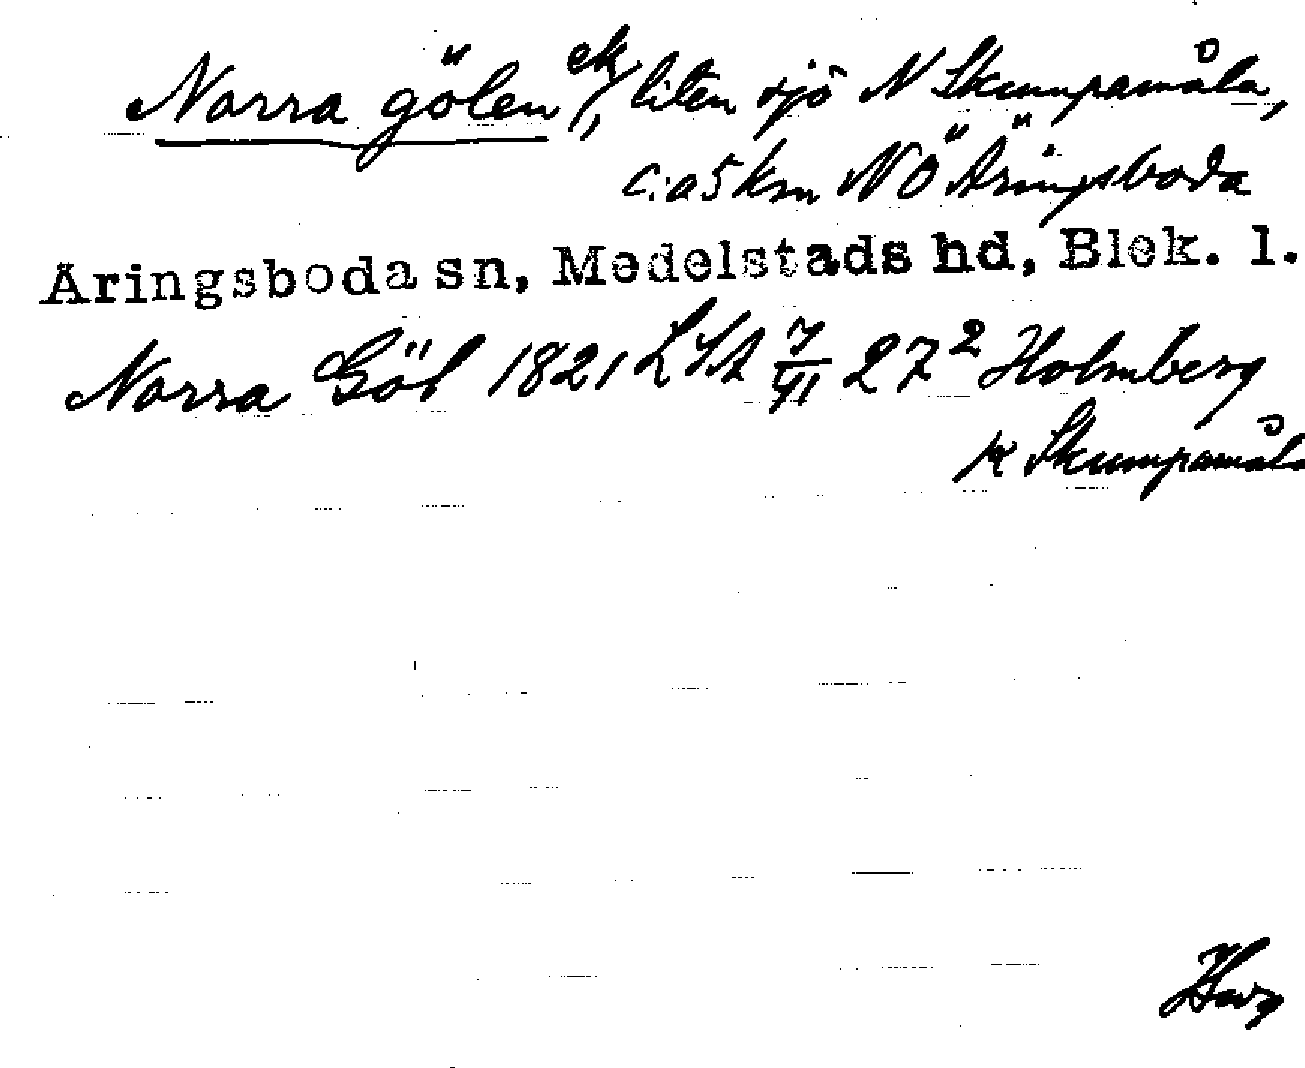 Norra gölen ek, liten sjö N Skumpamåla,
c:a 5 km NÖ Äringsboda
Aringsboda sn, Medelstads hd, Blek. l.
Norra Göl 1821 LSA 7/VI 27² Holmberg
k Skumpamåla